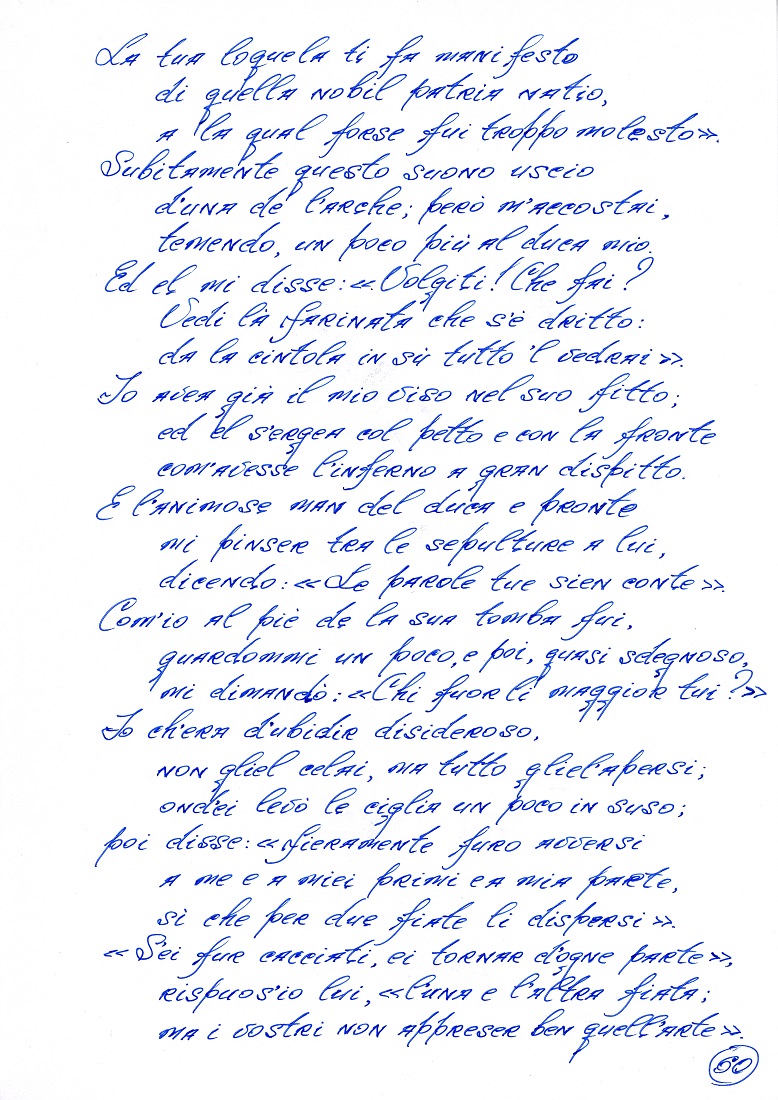 La tua loquela ti fa manifesto
di quella nobil patria natio,
a la qual forse fui troppo molesto».
Subitamente questo suono uscìo
d'una de l'arche; però m'accostai,
temendo, un poco più al duca mio.
Ed el mi disse: «Volgiti! Che fai?
Vedi là Farinata che s'è dritto:
da la cintola in sù tutto 'l vedrai».
Io avea già il mio viso nel suo fitto;
ed el s'ergea col petto e con la fronte
com'avesse l'inferno a gran dispitto.
E l'animose man del duca e pronte
mi pinser tra le sepulture a lui,
dicendo: «Le parole tue sien conte».
Com'io al piè de la sua tomba fui,
guardommi un poco, e poi, quasi sdegnoso,
mi dimandò: «Chi fuor li maggior tui?»
Io ch'era d'ubidir disideroso,
non gliel celai, ma tutto gliel'apersi;
ond'ei levò le ciglia un poco in suso;
poi disse: «Fieramente furo avversi
a me e a miei primi e a mia parte,
sì che per due fiate li dispersi».
«S'ei fur cacciati, ei tornar d'ogne parte»,
rispuos'io lui, «l'una e l'altra fiata;
ma i vostri non appreser ben quell'arte».
60